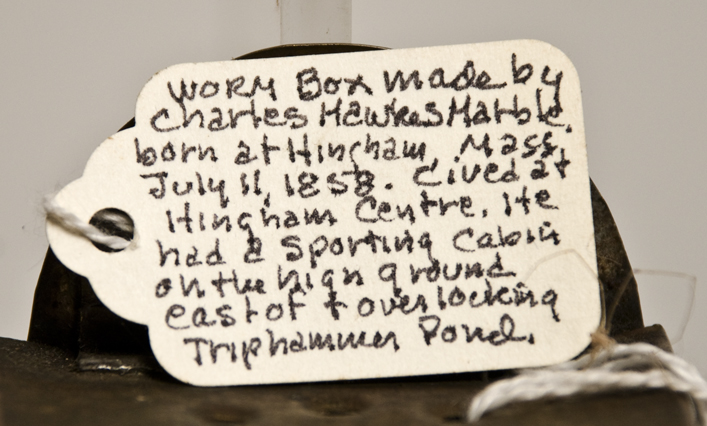 Worm Box made by
Charles Hawkes Marble,
born at Hingham, Mass,
July 11, 1858. Lived at
Hingham Centre. He
had a sporting cabin
on the high ground
east of + overlooking
Triphammer Pond.